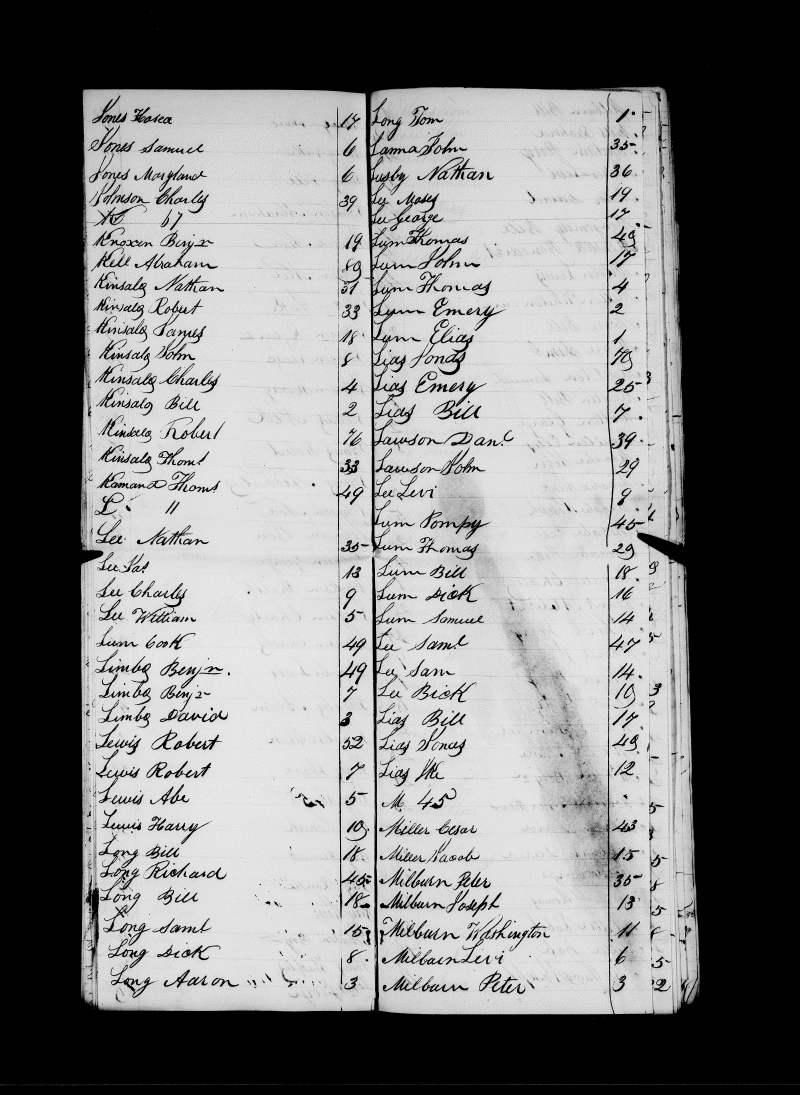 Jones Hosea 17
Jones Samuel 6
Jones Maryland 6
Johnson Charles 39
K 67
Knoxen Benjn 19
Kell Abraham 89
Kinsalo Nathan 31
Kinsalo Robert 33
Kinsalo James 18
Kinsalo John 8
Kinsalo Charles 4
Kinsalo Bill 2
Kinsalo Robert 76
Kinsalo Thoms 33
Thoms 49
L. 11
Lee Nathan 35
Lee 13
Lee Charles 9
Lee William 5
Lum Cook 49
Limbo Benjn. 49
Limbo Benjn 7
Limbo David 3
Lewis Robert 52
Lewis Robert 7
Lewis Abe 5
Lewis Harry 10
Long Bill 18
Long Richard 45
Long Bill 18
Long Saml 15
Long Dick 8
Long Aaron 3
Long Tom 1
John 35
Lusby Nathan 36
Lee Moses 19
Lee George 17
Lum Thomas 49
Lum John 17
Lum Thomas 4
Lum Emery 2
Lum Elias 1
Lias Jonas 79
Lias Emery 25
Lias Bill 7
Lawson Danl 39
Lawson John 29
Lee Levi 9
Lum Pompy 45
Lum Thomas 29
Lum Bill 18
Lum Dick 16
Lum Samuel 14
Lee Saml 47
Lee Sam 14
Lee Bick 10
Lias Bill 17
Lias Jonas 49
Lias Ike 12
M 45
Miller Cesar 43
Miller Jacob 15
Milburn Peter 35
Milburn Joseph 13
Milburn Washington 11
Milburn Levi 6
Milburn Peter 3